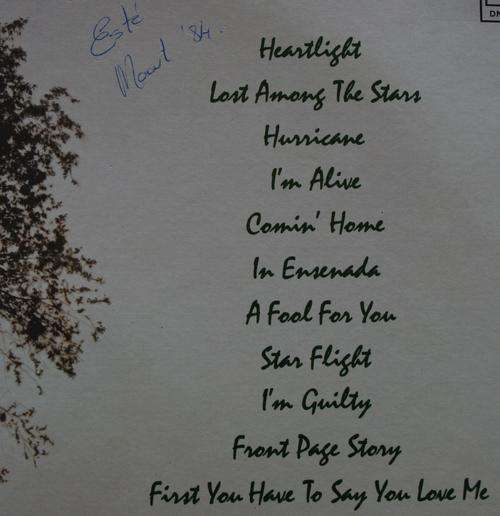 Esté
Maart '84.
DM
Heartlight
Lost Among The Stars
Hurricane
I'm Alive
Comin' Home
In Ensenada
A Fool For You
Star Flight
I'm Guilty
Front Page Story
First You Have To Say You Love Me